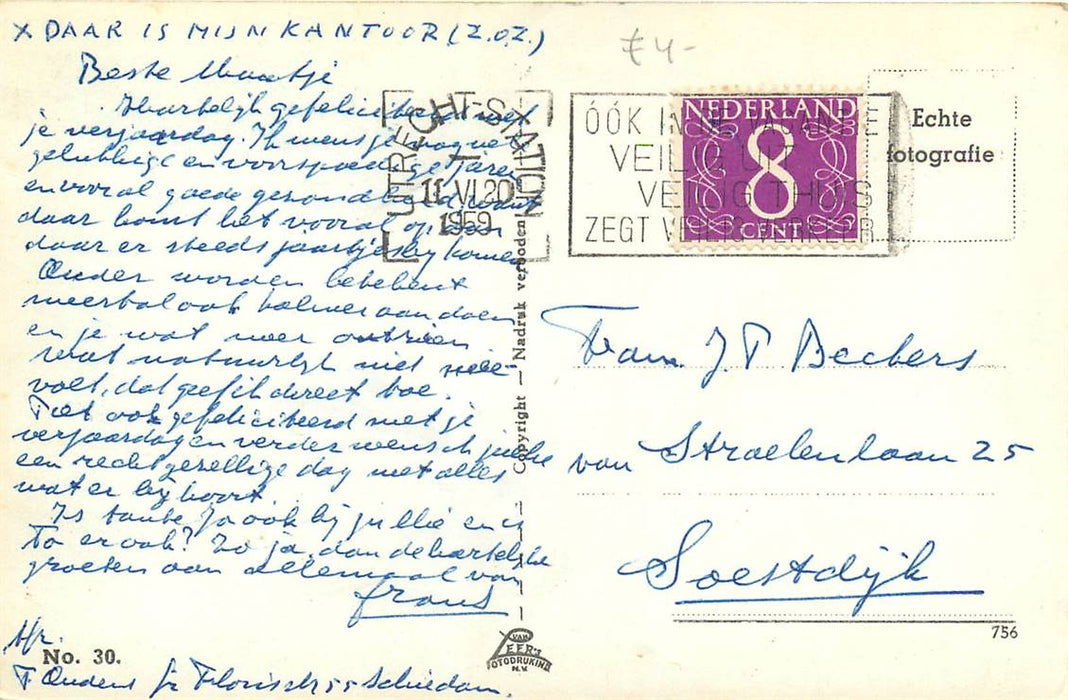 X DAAR IS MIJN KANTOOR (Z.O.Z.)
£4-
Beste
Hartelijk gefeliciteerd met
je verjaardag. Ik wens je nog vele
gelukkige en voorspoedige jaren
en vooral goede gezondheid want
daar komt het vooral op aan
daar er steeds jaartjes bij komen
Ouder worden betekent
meestal ook kalmer aan doen
en je wat meer ontzien
wat natuurlijk niet mee-
valt, dat geef ik direct toe.
ook gefeliciteerd met je
verjaardag en verder wensch jullie
een recht gezellige dag met alles
wat er bij hoort.
Is tante Jo ook bij jullie en is
To er ook? Zo ja, dan de hartelijke
groeten aan allemaal van
Frans
Afz.
No. 30.
F Oudens Schiedam.
UTRECHT-STATION
11.VI.20
1959
ÓÓK IN DE VACANTIE
VEILIG UIT
VEILIG THUIS
ZEGT VEILIG VERKEER
NEDERLAND
8
CENT
Echte
fotografie
Copyright — Nadruk verboden
Fam. J. P. Beckers
van Straelenlaan 25
Soestdijk
756
VAN
LEER'S
FOTODRUKIND
N.V.